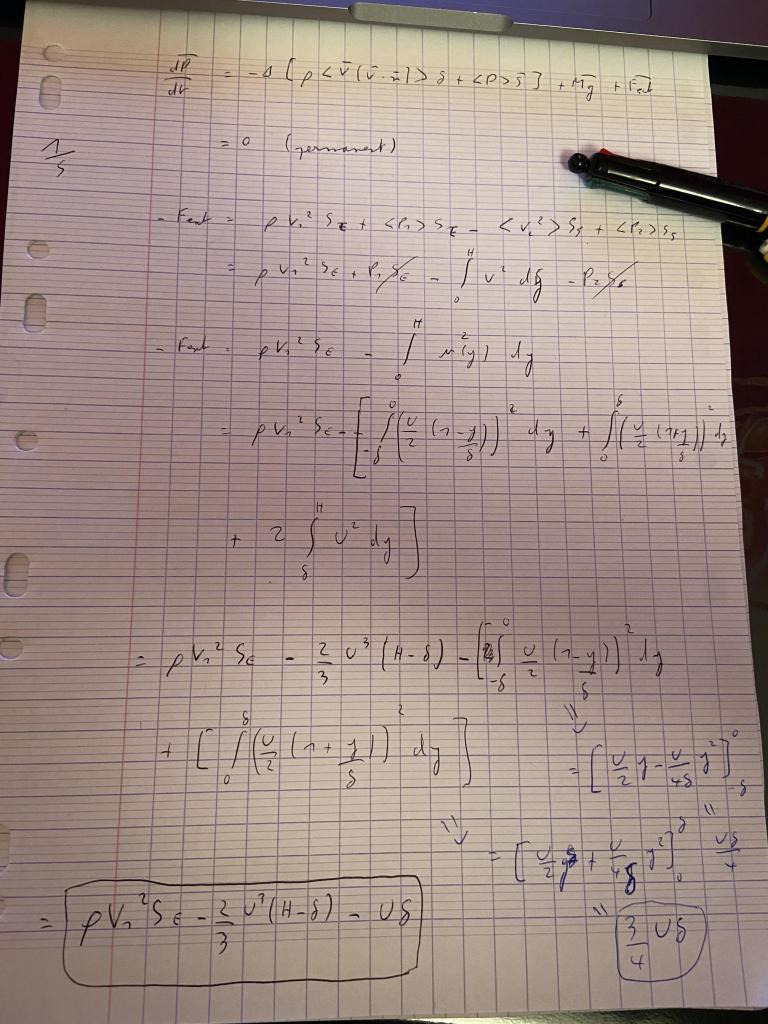 dP̄/dt = -Δ [ρ <v̄ (v̄ - ū)> S + <P> S̄] + M̄g + F̄ext
1/5
= 0 (permanent)
- Fext = ρ V₁² S_E + <P₁> S_E - <V₂²> S_S + <P₂> S_S
= ρ V₁² S_E + P₁ S_E - ∫₀^H v² dy - P₂ S_S
- Fext = ρ V₁² S_E - ∫₀^H u²(y) dy
= ρ V₁² S_E - [ ∫_{-δ}^0 (U/2 (1 - y/δ))² dy + ∫₀^δ (U/2 (1 + y/δ))² dy
+ 2 ∫_δ^H U² dy ]
= ρ V₁² S_E - 2/3 U³ (H - δ) - [ ∫_{-δ}^0 U/2 (1 - y/δ))² dy
+ [ ∫₀^δ (U/2 (1 + y/δ))² dy ]
= [U/2 y - U/4δ y²]_{-δ}^0
= [U/2 y + U/4δ y²]₀^δ
= Uδ/4
= ρ V₁² S_E - 2/3 U³ (H - δ) - Uδ
= 3/4 Uδ